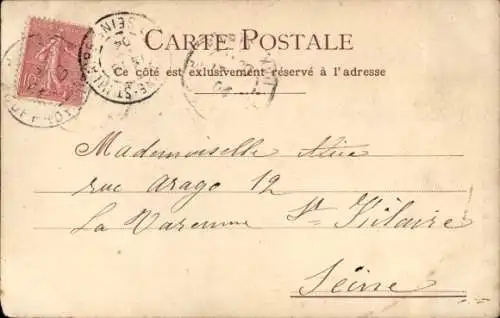 CARTE POSTALE
Ce côté est exlusivement réservé à l'adresse
Mademoiselle
rue Arago 12
La Varenne St Hilaire
Seine